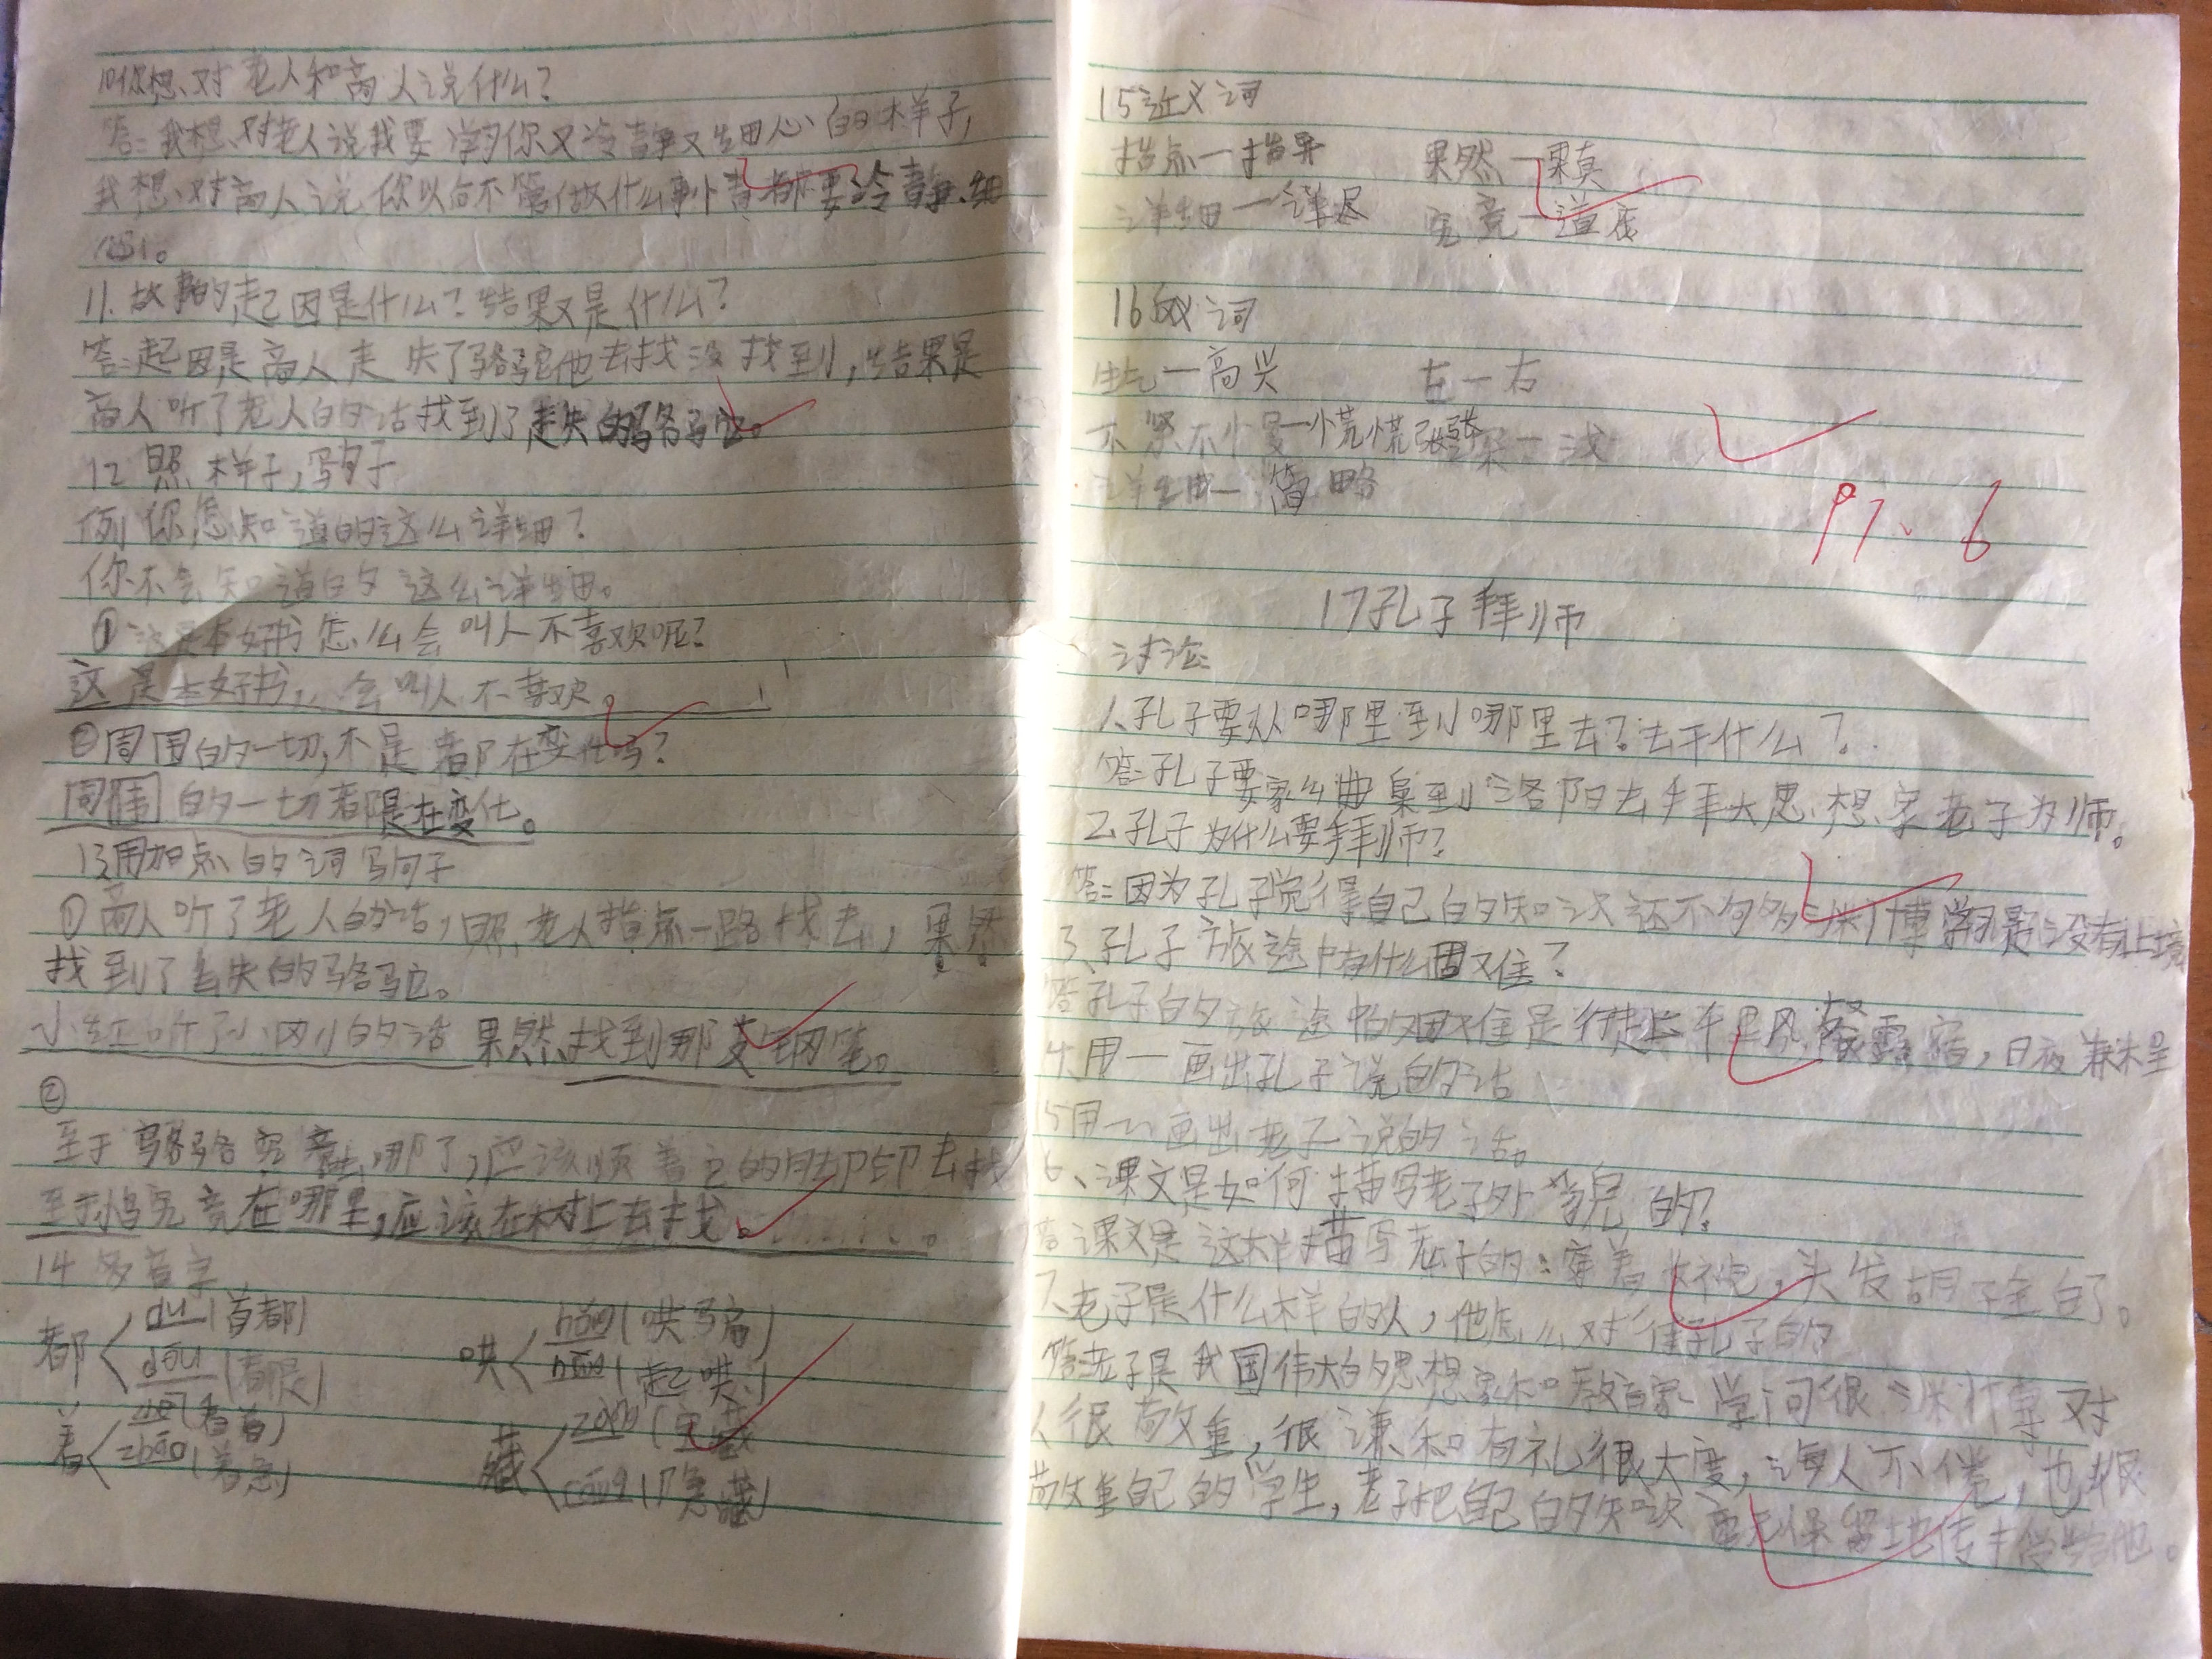 10你想对老人和商人说什么?
答:我想对老人说我要学习你又冷静又细心的样子,
我想对商人说你以后不管做什么事情都要冷静、细
心。
11.故事的起因是什么?结果又是什么?
答:起因是商人走失了骆驼他去找没找到,结果是
商人听了老人的话找到了走失的骆驼。
12照样子,写句子
例你怎知道的这么详细?
你不会知道的这么详细。
①这是本好书怎么会叫人不喜欢呢?
这是本好书,会叫人不喜欢
②周围的一切,不是都在变化吗?
周围的一切都是在变化。
13用加点的词写句子
①商人听了老人的话,照老人指点一路找去,果然
找到了丢失的骆驼。
小红听了小刚的话果然找到那支钢笔。
②
至于骆骆究竟去哪了,应该顺着它的脚印去找
至于鸟究竟在哪里,应该在树上去找。
14多音字
都 du(首都) 哄 hǒng(哄骗)
dōu(都是) hòng(起哄)
着 zhe(看着) 藏 zàng(宝藏
zháo(着急) cáng(隐藏)
15近义词
指点—指导 果然—果真
详细—详尽 究竟—道底
16反义词
生气—高兴 左—右
不紧不慢—慌慌张张 深—浅
详细—简略
97、6
17孔子拜师
讨论
1、孔子要从哪里到哪里去?去干什么?
答:孔子要家乡曲阜到洛阳去拜大思想家老子为师。
2、孔子为什么要拜师?
答:因为孔子觉得自己的知识还不够多渊博学习是没有止境
3、孔子旅途中有什么困难?
答:孔子的旅途中的困难是行走上千里风餐露宿,日夜兼程
4、用一画出孔子说的话
5用﹏画出老子说的话。
6、课文是如何描写老子外貌的?
答课文是这样描写老子的:穿着长袍,头发胡子全白了。
7、老子是什么样的人,他怎么对待孔子的
答:老子是我国伟大的思想家和教育家学问很渊博对
人很敬重,很谦和有礼很大度,诲人不倦,也很
敬重自己的学生,老子把自己的知识毫无保留地传授给他。